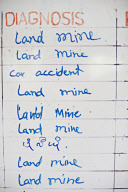 DIAGNOSIS
Land mine
Land mine
Car accident
Land mine
Land Mine
Land mine
Land mine
Land mine